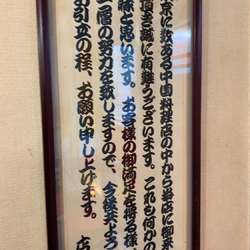 京に数ある中国料理店の中から当店に御来
頂き誠に有難うございます。これも何かの
縁と思います。お客様の御満足を得る様
一層の努力を致しますので、今後共よろ
お引立の程、お願い申し上げます。 店